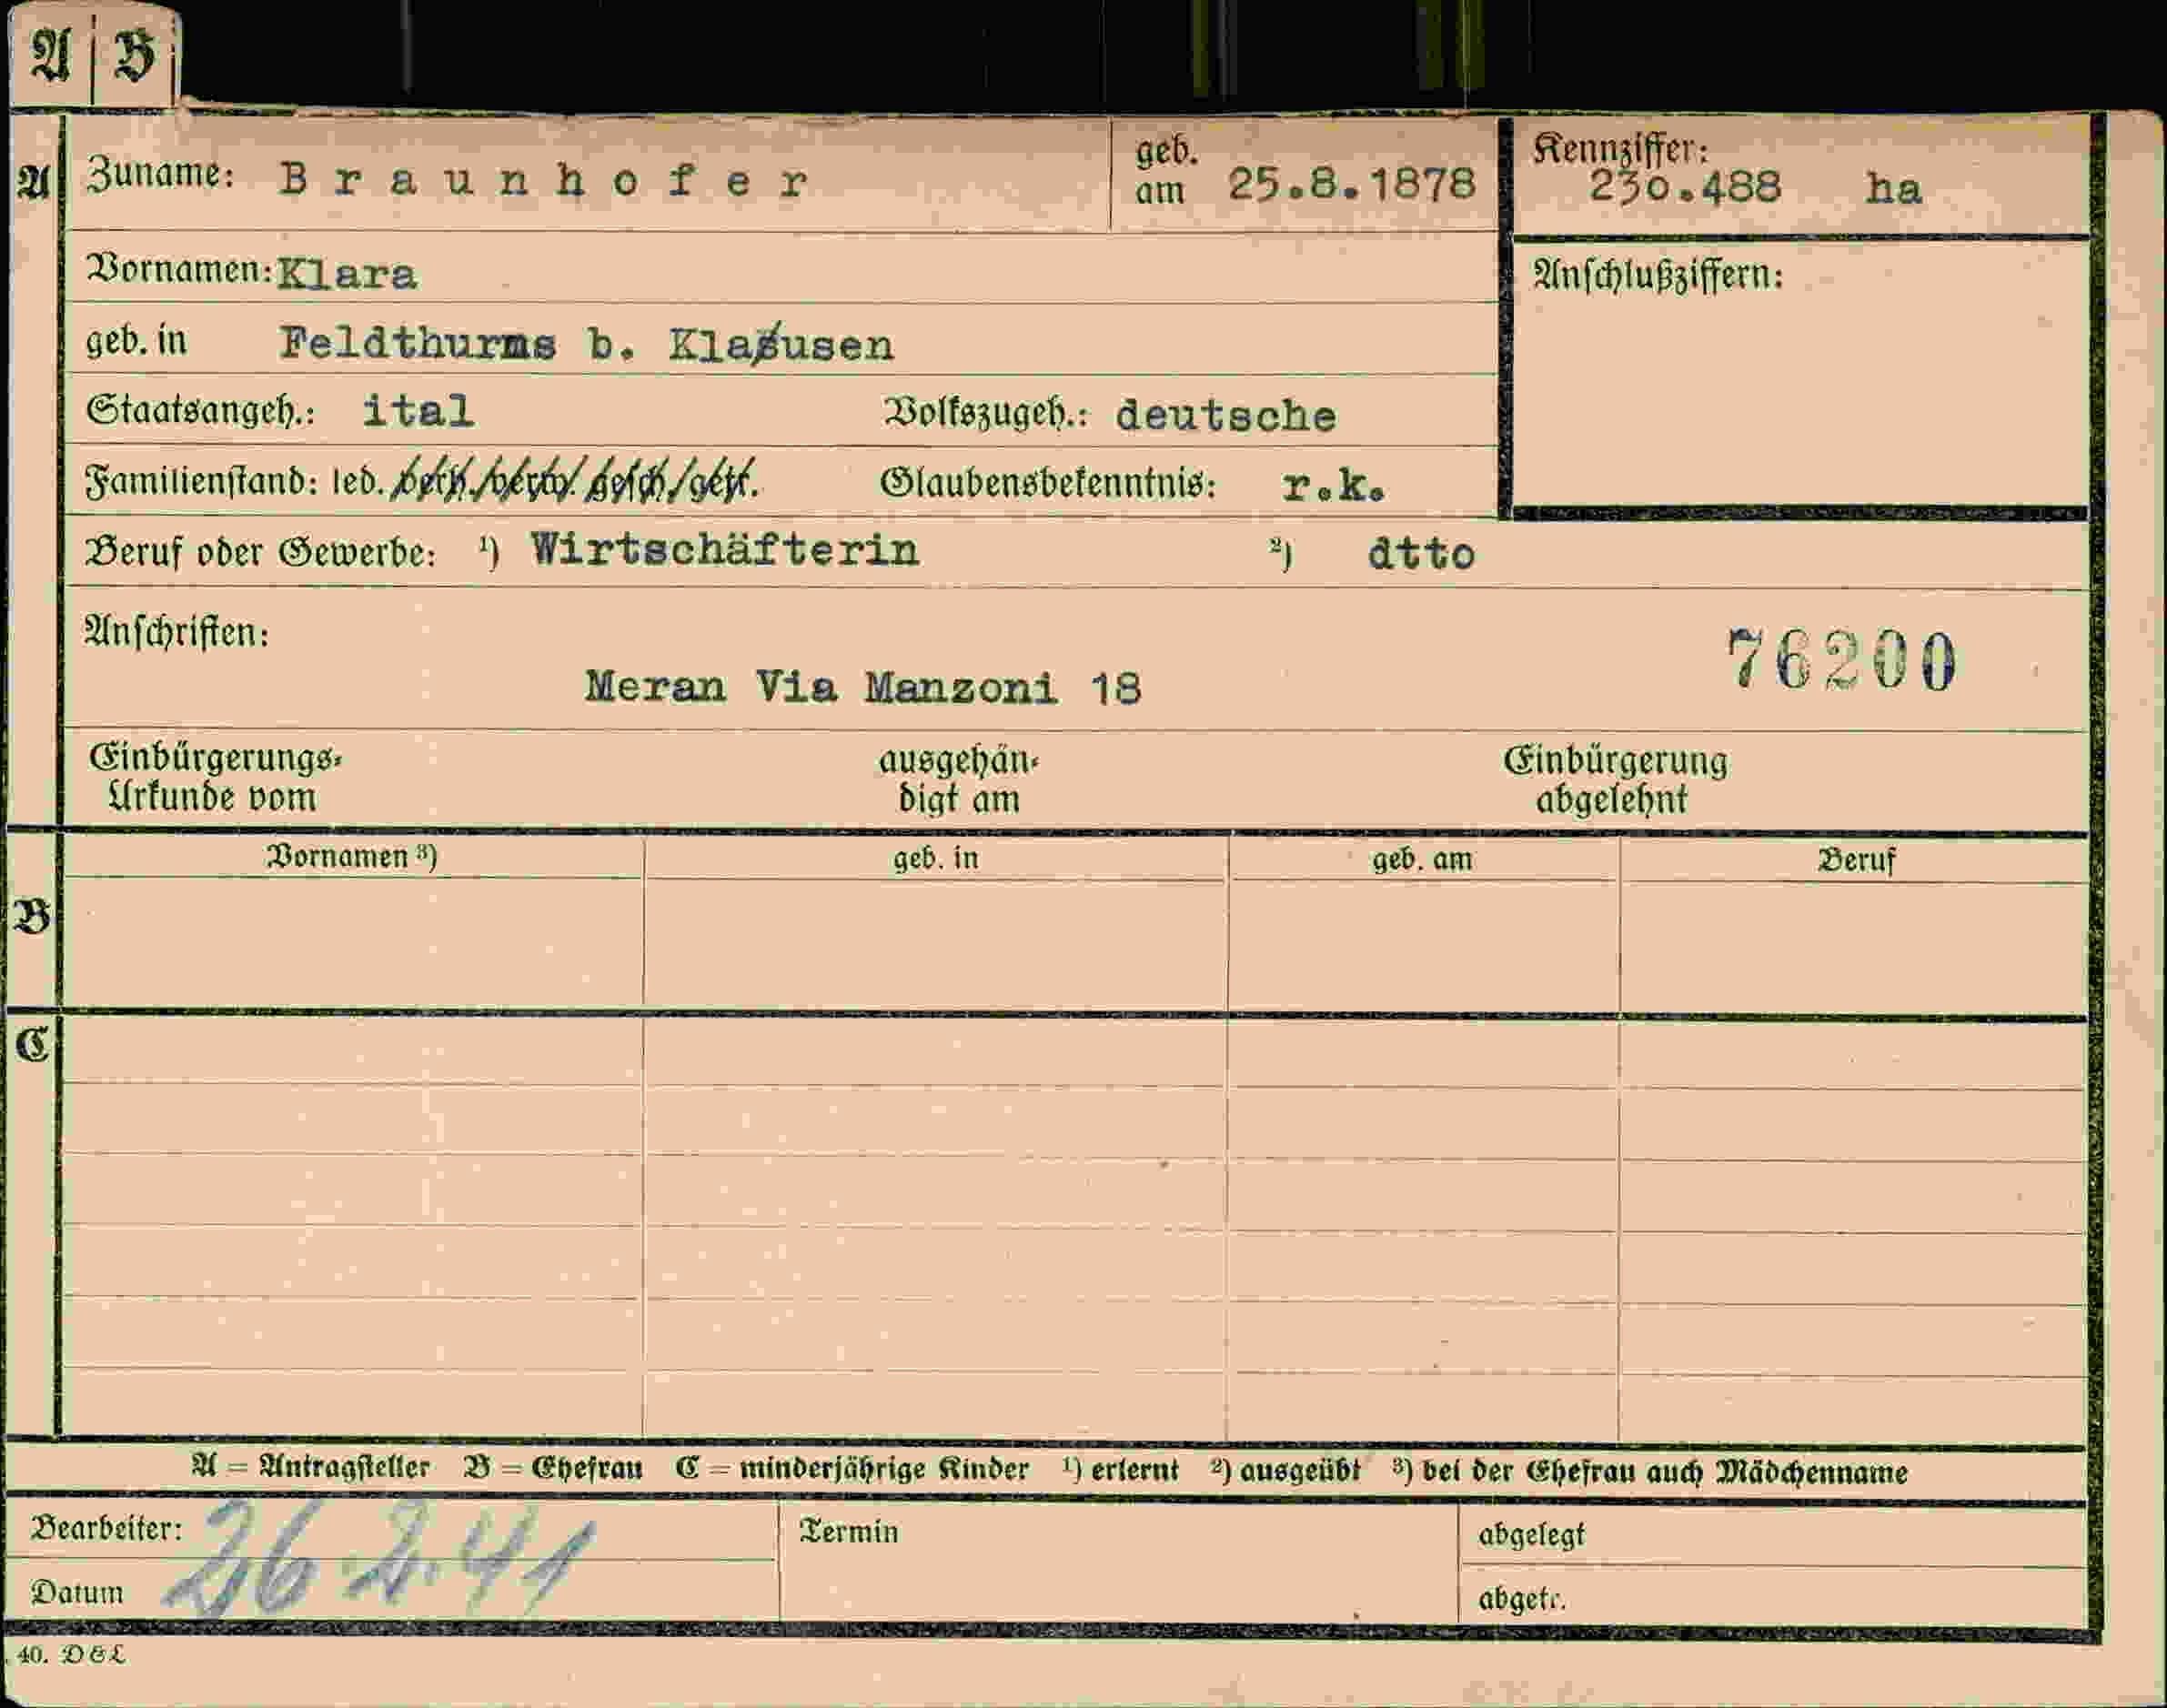 A | B
A Zuname: Braunhofer geb. am 25.8.1878 Kennziffer: 230.488 ha
Vornamen: Klara Anschlußziffern:
geb. in Feldthurns b. Klausen
Staatsangeh.: ital Volkszugeh.: deutsche
Familienstand: led. verh./verw./gesch./getr. Glaubensbekenntnis: r.k.
Beruf oder Gewerbe: ¹) Wirtschäfterin ²) dtto
Anschriften: 76200
Meran Via Manzoni 18
Einbürgerungs- ausgehän- Einbürgerung
Urkunde vom digt am abgelehnt
Vornamen ³) geb. in geb. am Beruf
B
C
A = Antragsteller B = Ehefrau C = minderjährige Kinder ¹) erlernt ²) ausgeübt ³) bei der Ehefrau auch Mädchenname
Bearbeiter: Termin abgelegt
26.2.41
Datum abgetr.
40. D&L